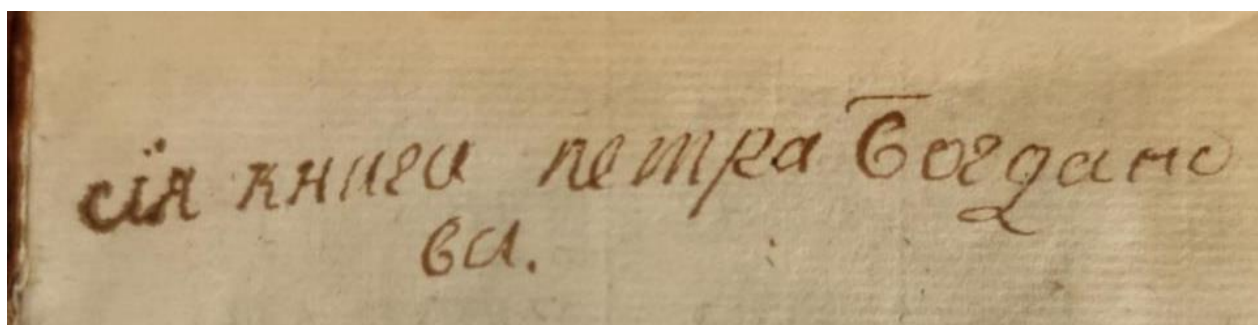 сїя книга петра Богдано
ва.